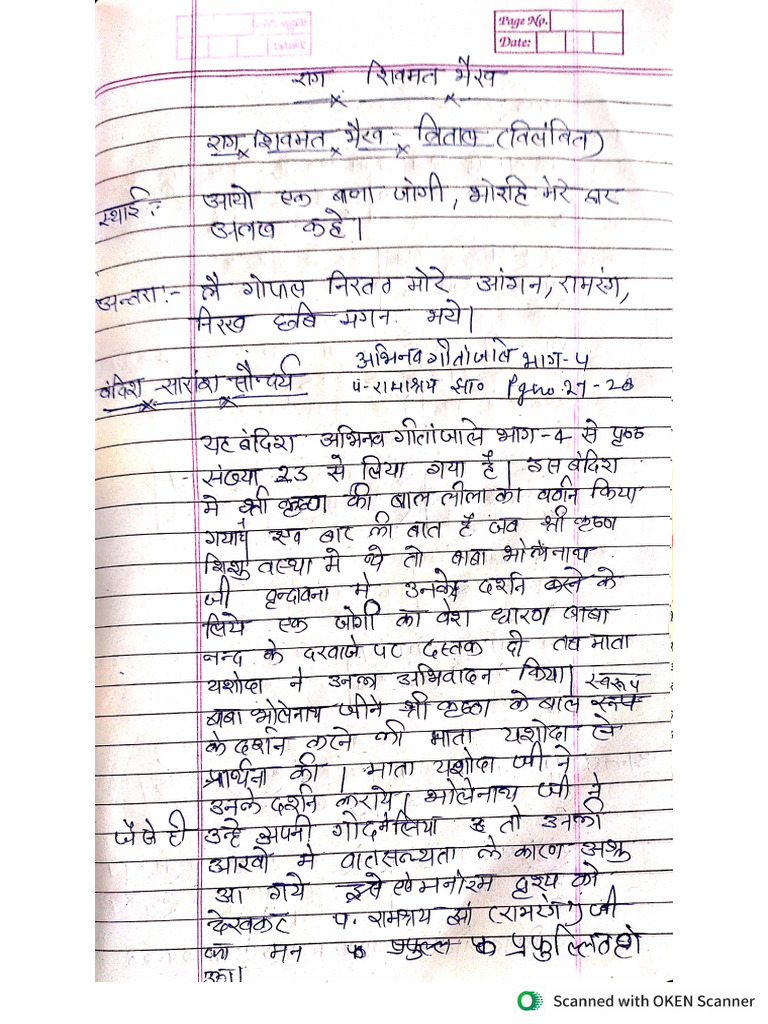 Page No.
Date:
राग शिवमत भैरव
राग शिवमत भैरव - त्रिताल (विलंबित)
स्थाई :- आयो एक बाणा जोगी, भोरहि मेरे द्वार
अलख कहे।
अन्तरा :- लै गोपाल निरतत मोरे आंगन, रामरंग,
निरख छबि मगन भये।
बंदिश - सारांश सौन्दर्य अभिनव गीतांजलि भाग-५
पं. रामाश्रय झा० Pg no. 27-28
यह बंदिश अभिनव गीतांजले भाग-4 से पृष्ठ
संख्या 23 से लिया गया है। इस बंदिश
मे श्री कृष्ण की बाल लीला का वर्णन किया
गया है एक बार की बात है जब श्री कृष्ण
शिशु वस्था मे थे तो बाबा भोलेनाथ
जी वृन्दावना मे उनके दर्शन करने के
लिये एक जोगी का वेश धारण बाबा
नन्द के दरवाजे पट दस्तक दी तब माता
यशोदा ने उनका अभिवादन किया।
बाबा भोलेनाथ जीने श्री कृष्ण के बाल स्वरूप
के दर्शन करने की माता यशोदा से
प्रार्थना की। माता यशोदा जी ने
उनके दर्शन कराये। भोलेनाथ जी ने
जैसे ही उन्हे अपनी गोदमे लिया तो उनकी
आखो मे वातसल्यता के कारण अश्रु
आ गये इसे मनोरम दृश्य को
देखकर पं. रामाश्रय झां (रामरंग) जी
का मन प्रफुल्लित हो
उठा।
Scanned with OKEN Scanner